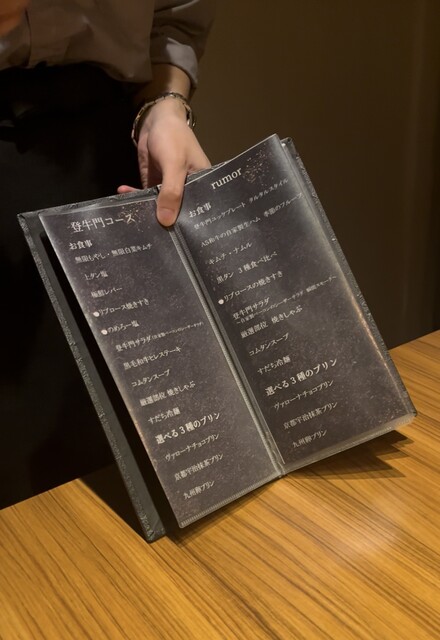 登牛門コース
お食事
無限もやし・無限白菜キムチ
上タン塩
極醸レバー
●リブロース焼きすき
●のめろー塩
登牛門サラダ
黒毛和牛ヒレステーキ
コムタンスープ
厳選部位 焼きしゃぶ
すだち冷麺
選べる3種のプリン
ヴァローナチョコプリン
京都宇治抹茶プリン
九州卵プリン
rumor
お食事
登牛門ユッケプレート タルタルスタイル
A5和牛の自家製生ハム 季節のフルーツ
キムチ・ナムル
黒タン 3種食べ比べ
●リブロースの焼きすき
登牛門サラダ
厳選部位 焼きしゃぶ
コムタンスープ
すだち冷麺
選べる3種のプリン
ヴァローナチョコプリン
京都宇治抹茶プリン
九州卵プリン